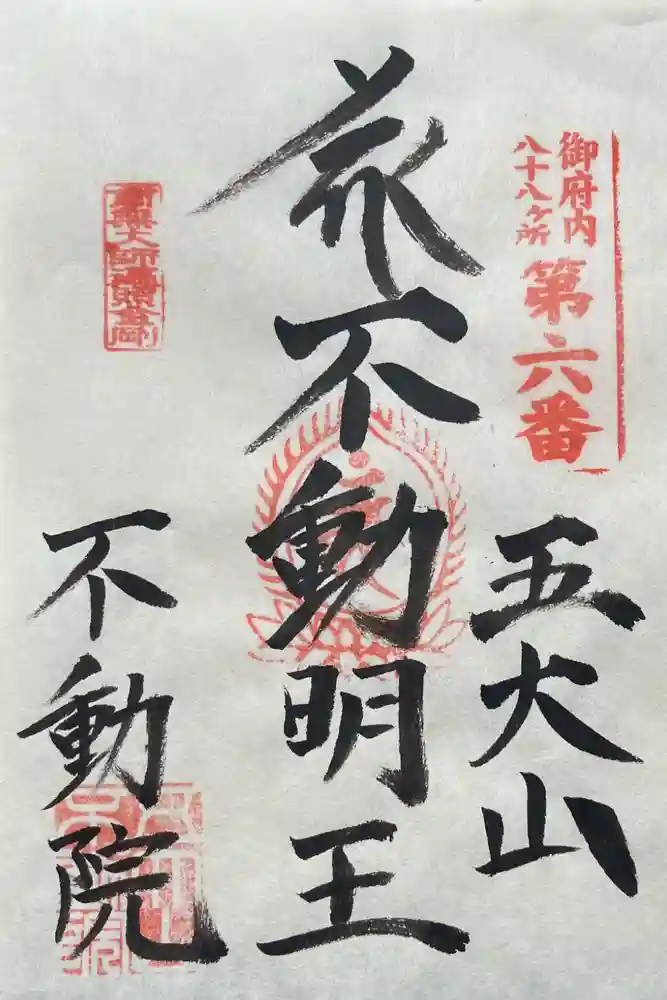 御府内
八十八ヶ所
第六番
五大山
不動明王
不動院